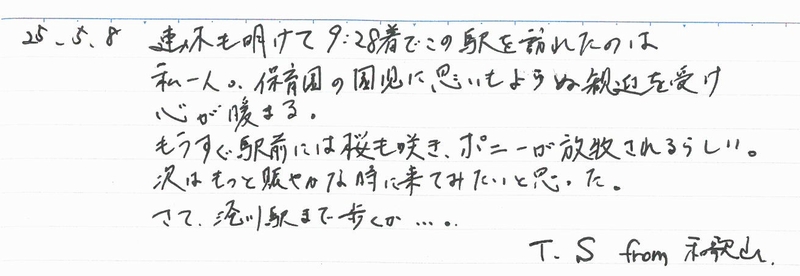 25.5.8 連休も明けて9:28着でこの駅を訪れたのは
私一人。保育園の園児に思いもよらぬ歓迎を受け
心が暖まる。
もうすぐ駅前には桜も咲き、ポニーが放牧されるらしい。
次はもっと賑やかな時に来てみたいと思った。
さて、 川駅まで歩くか…。
T.S from 和歌山.